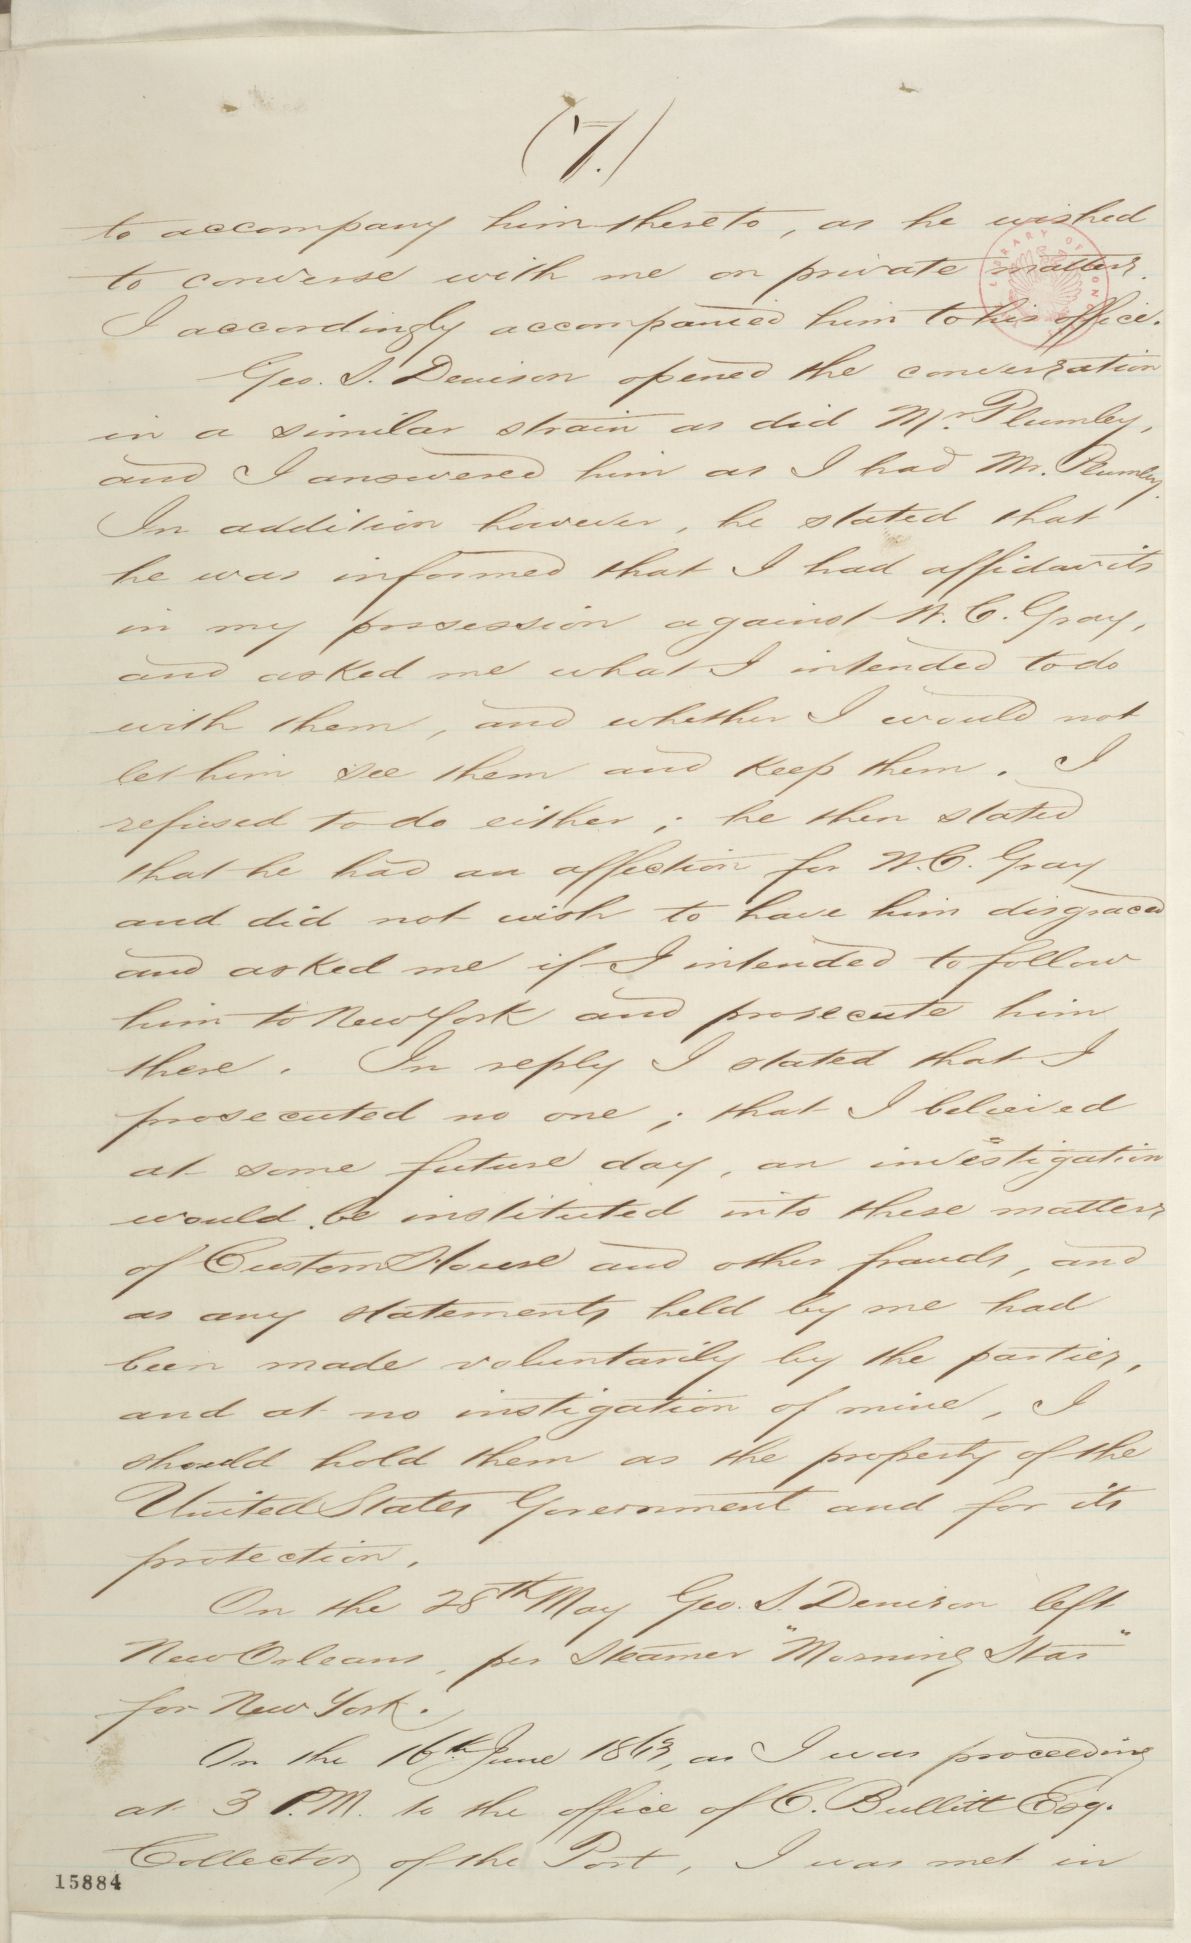 (7.)
to accompany him thereto, as he wished
to converse with me on private matters.
I accordingly accompanied him to his office.
Geo. S. Denison opened the conversation
in a similar strain as did Mr. Plumley,
and I answered him as I had Mr. Plumley.
In addition however, he stated that
he was informed that I had affidavits
in my possession against W. C. Gray,
and asked me what I intended to do
with them, and whether I would not
let him see them and keep them. I
refused to do either; he then stated
that he had an affection for W. C. Gray
and did not wish to have him disgraced
and asked me if I intended to follow
him to New York and prosecute him
there. In reply I stated that I
prosecuted no one; that I believed
at some future day, an investigation
would be instituted into these matters
of Custom House and other frauds, and
as any statements held by me had
been made voluntarily by the parties,
and at no instigation of mine, I
should hold them as the property of the
United States Government and for its
protection.
On the 28th May Geo. S. Denison left
New Orleans, per Steamer "Morning Star"
for New York.
On the 16th June 1863, as I was proceeding
at 3 P.M. to the office of C. Bullitt Esq.
Collector of the Port, I was met in
15884